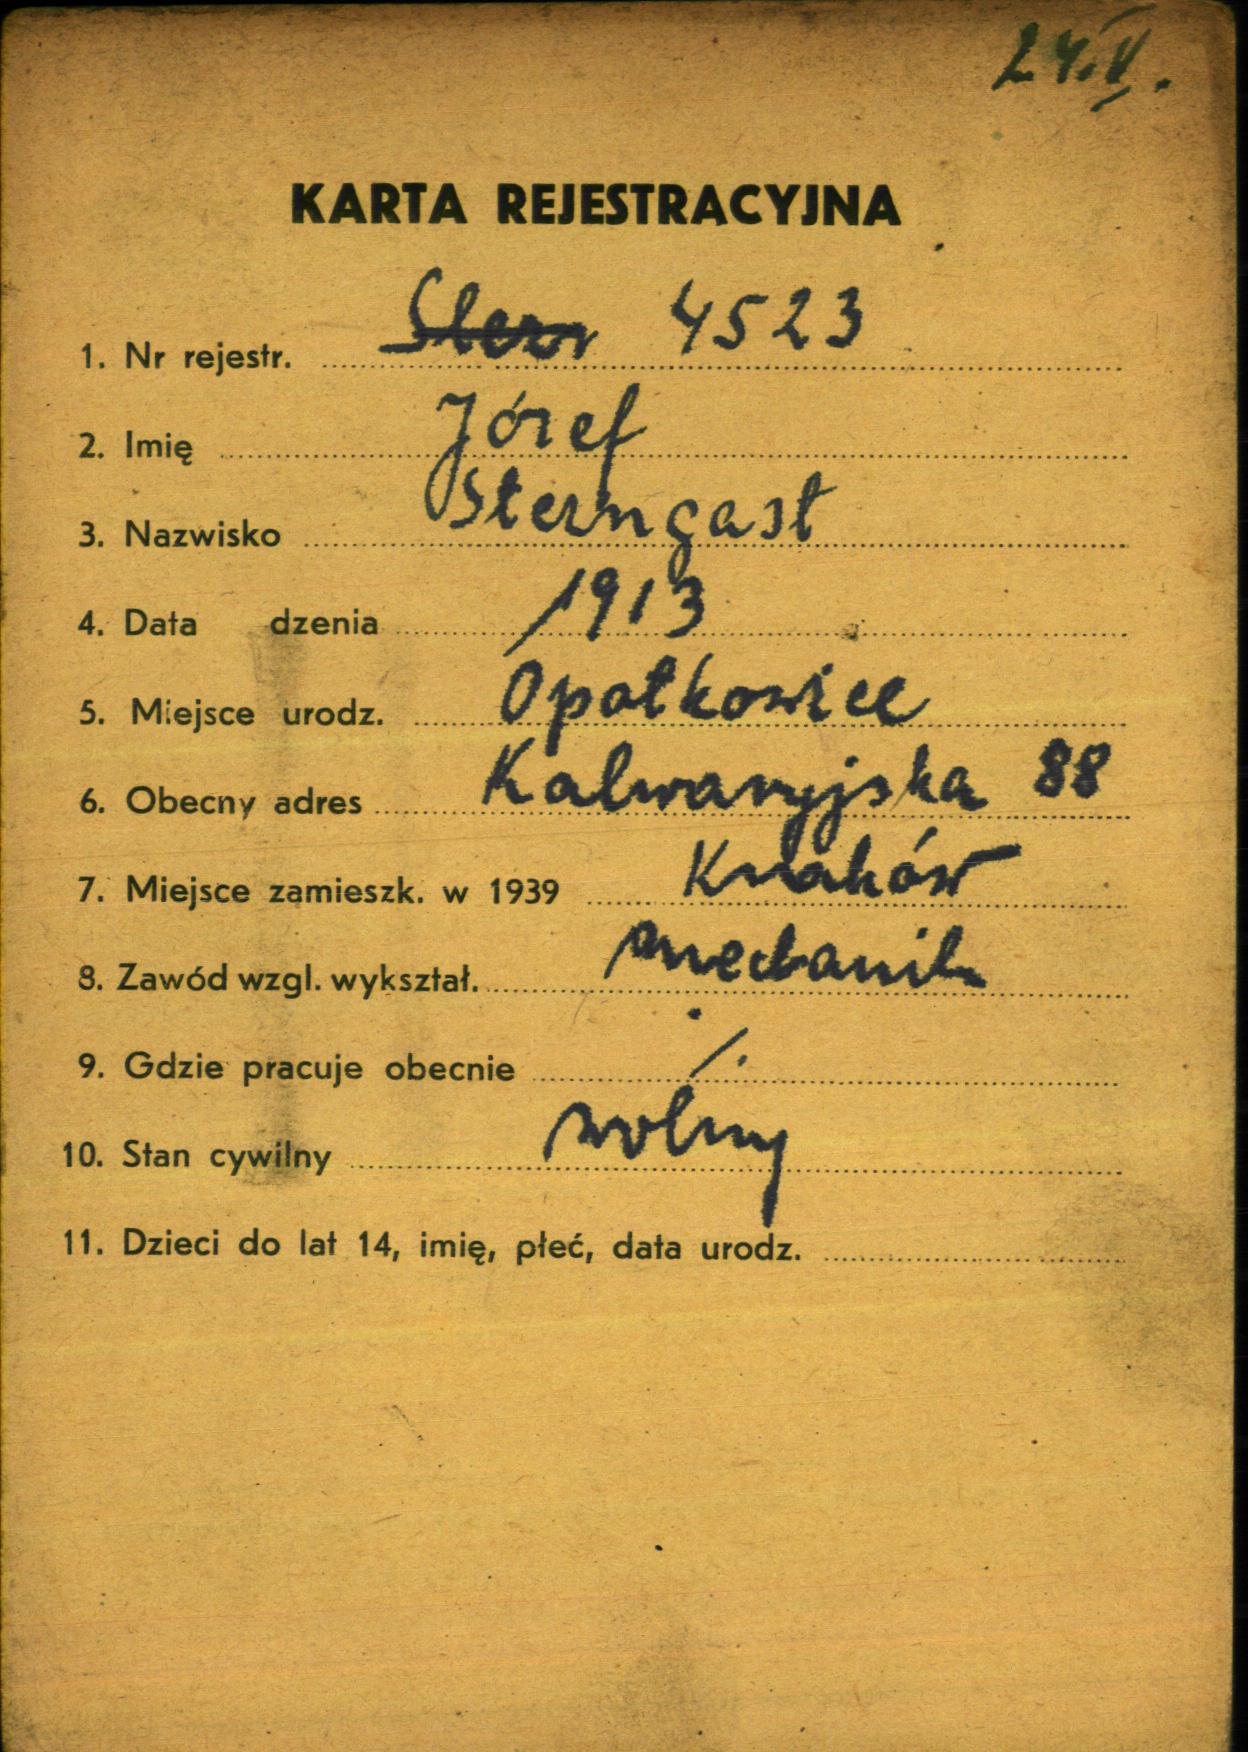 24.V.
KARTA REJESTRACYJNA
1. Nr rejestr. 4523
2. Imię Józef
3. Nazwisko Sterngast
4. Data dzenia 1913
5. Miejsce urodz. Opatkowice
6. Obecny adres Kalwaryjska 88
7. Miejsce zamieszk. w 1939 Kraków
8. Zawód wzgl. wykształ. mechanik
9. Gdzie pracuje obecnie ./.
10. Stan cywilny wolny
11. Dzieci do lat 14, imię, płeć, data urodz.